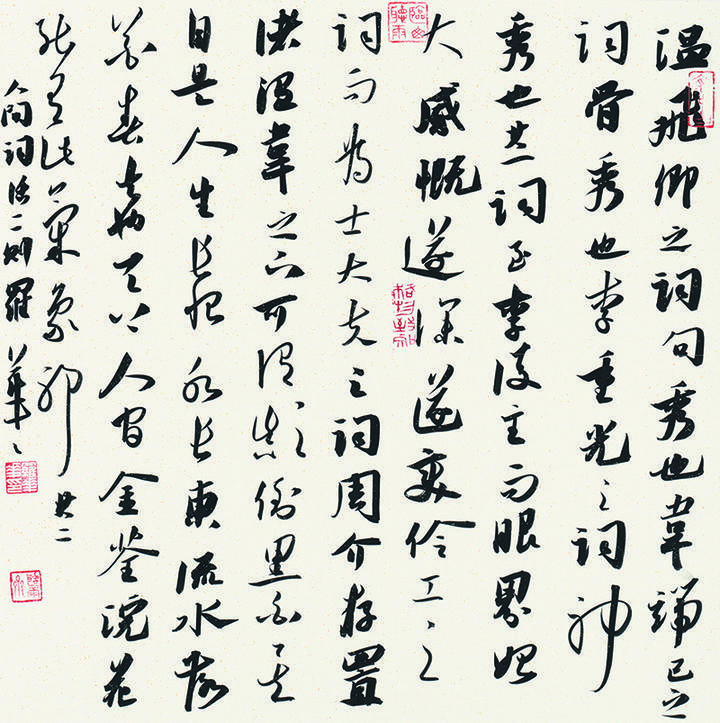 温飛卿之詞句秀也韋端己之
詞骨秀也李重光之詞神
秀也其一詞至李後主而眼界始
大感慨遂深遂變伶工之
詞而為士大夫之詞周介存置
諸温韋之下可謂顛倒黑白矣
自是人生長恨水長東流水落
花春去也天上人間金荃浣花
能有此氣象耶其二
人間詞話二則羅華